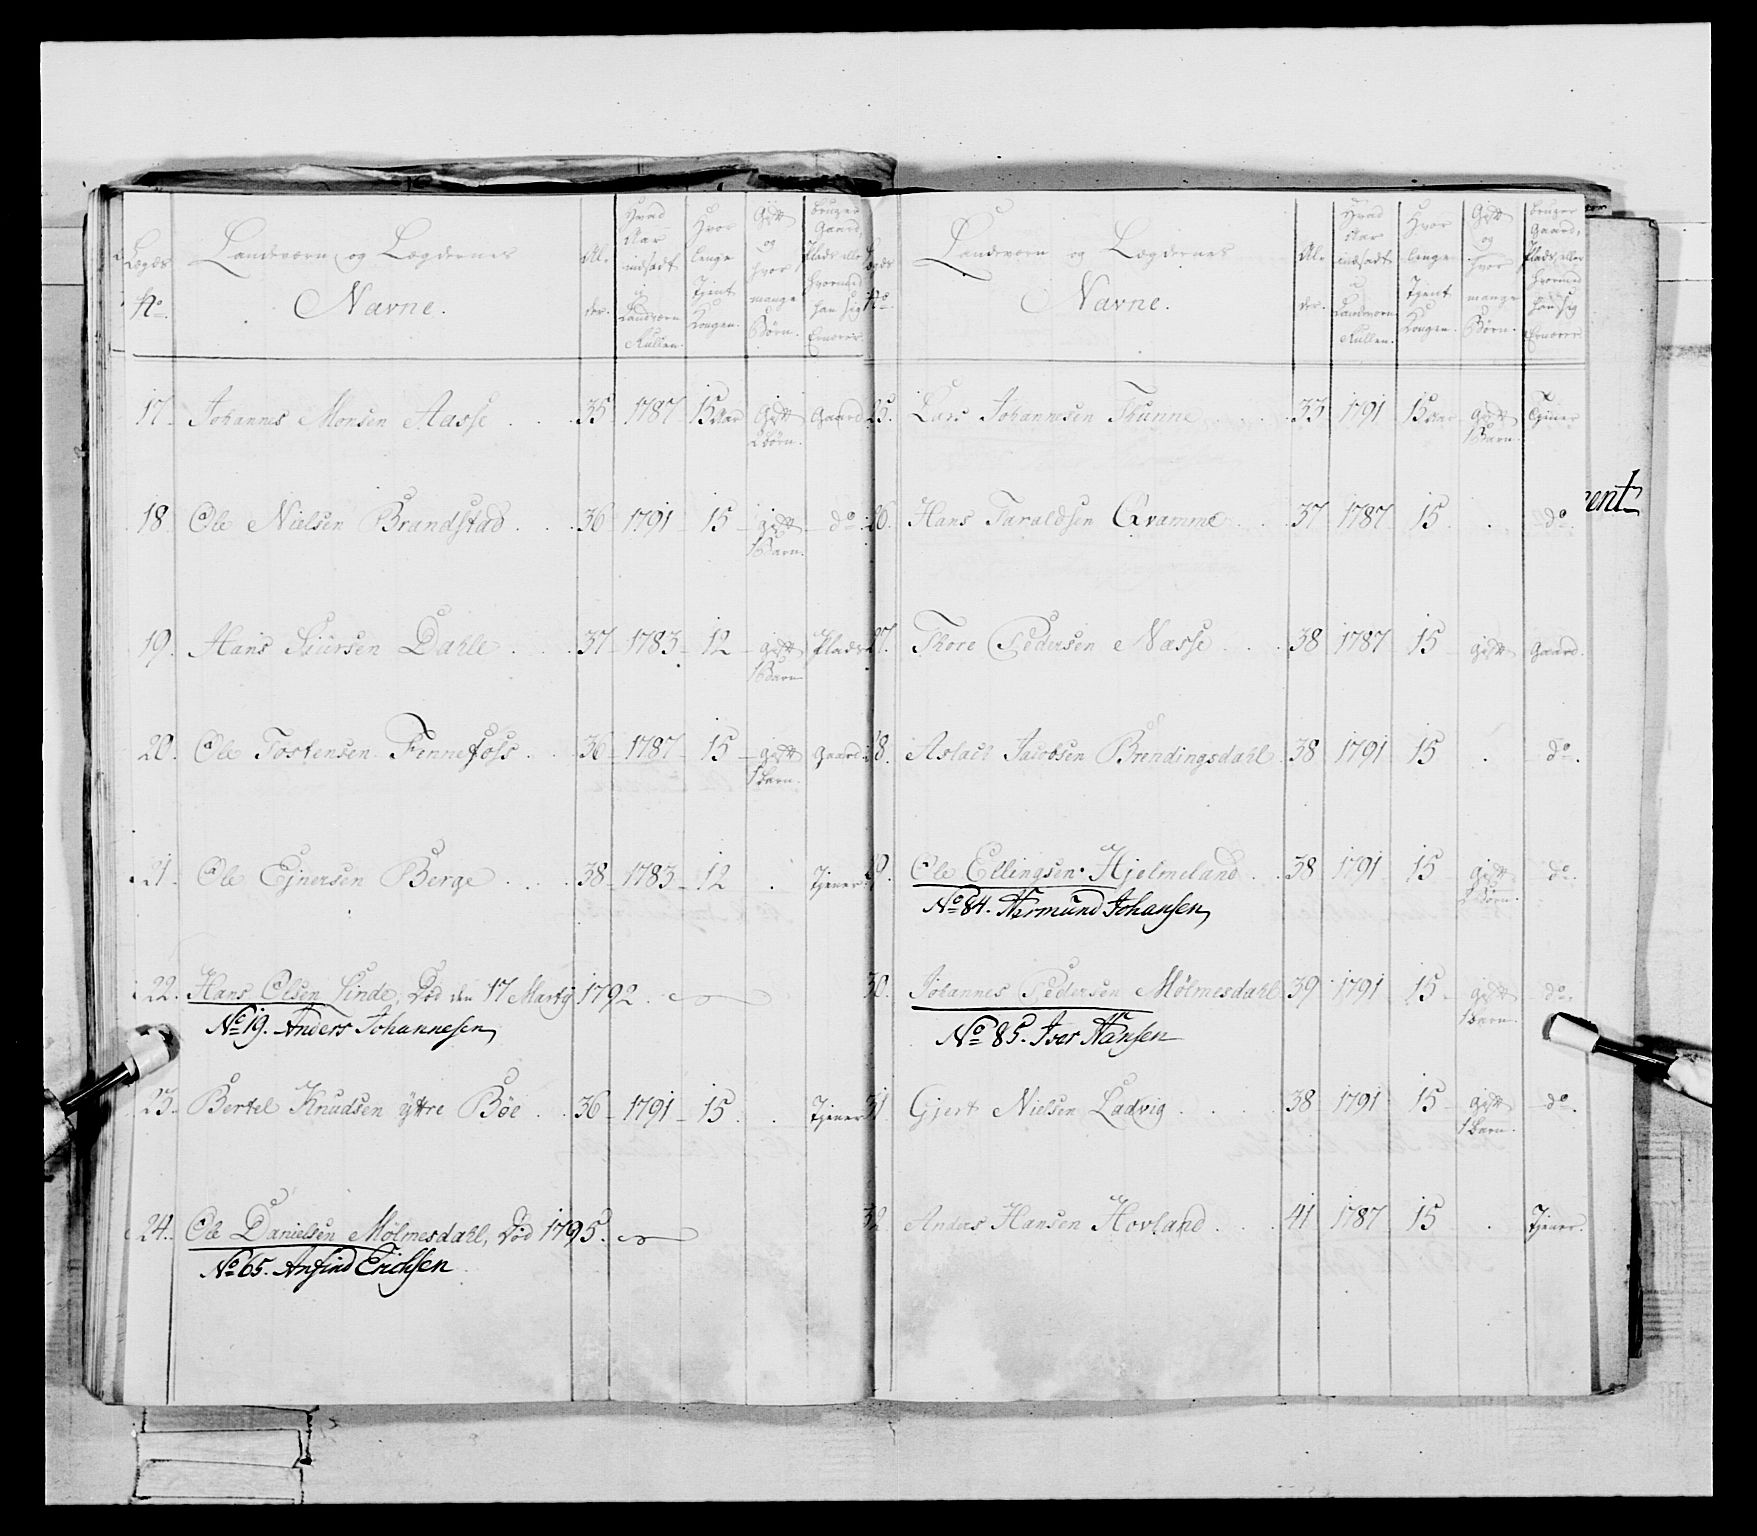 Lægds No. | Landeværn og Lægdernes Navne. | Al-der. | Hvad Aar indsadt i Landværn Rullen. | Hvor lenge Tjent Kongen. | Gift og hvor mange Børn. | bruger Gaard, Plads eller hvormed han sig Ernærer
17. Johannes Monsen Aasse . . . 35 1787 15 Aar Gift 2 børn. Gaard
18. Ole Nielsen Brandstad . . . 36 1791 15 gift 1 Barn. do
19. Hans Siursen Dahle . . . 37 1783 12 gift 1 Barn Plads
20. Ole Tostensen Finnefoss . . . 36 1787 15 gift 1 barn. Gaard
21. Ole Ejnersen Berge . . . 38 1783 12 . Tjener
22. Hans Olsen Linde, Død den 17 Marty 1792.
No 19. Anders Johannesen
23. Bertel Knudsen yttre Böe . . 36 1791 15 . . Tjener
24. Ole Danielsen Mölmesdahl, Död 1795.
No 65. Anfind Erichsen
Lægds No. | Landeværn og Lægdernes Navne. | Al-der. | Hvad Aar indsadt i Landværn Rullen. | Hvor lenge Tjent Kongen. | Gift og hvor mange Børn. | bruger Gaard, Plads eller hvormed han sig Ernærer
25. Lars Johannesen Thunne . . 33 1791 15 Aar gift 1 Barn Tjener
26. Hans Taraldsen Qvamme . . 37 1787 15 . . do
27. Thore Pedersen Næsse . . . 38 1787 15 gift Gaard.
28. Aslach Jacobsen Brendingsdahl 38 1791 15 . do.
29. Ole Ellingsen Hjelmeland . . 38 1791 15 gift Börn. do.
No 84. Hermund Johansen
30. Johannes Pedersen Mölmesdahl 39 1791 15 gift 1 barn. do.
No 85. Iver Hansen
31. Gjert Nielsen Ladvig . . . 38 1791 15 gift 1 barn. do.
32. Anders Hansen Hovland . . . 41 1787 15 . Tjener.